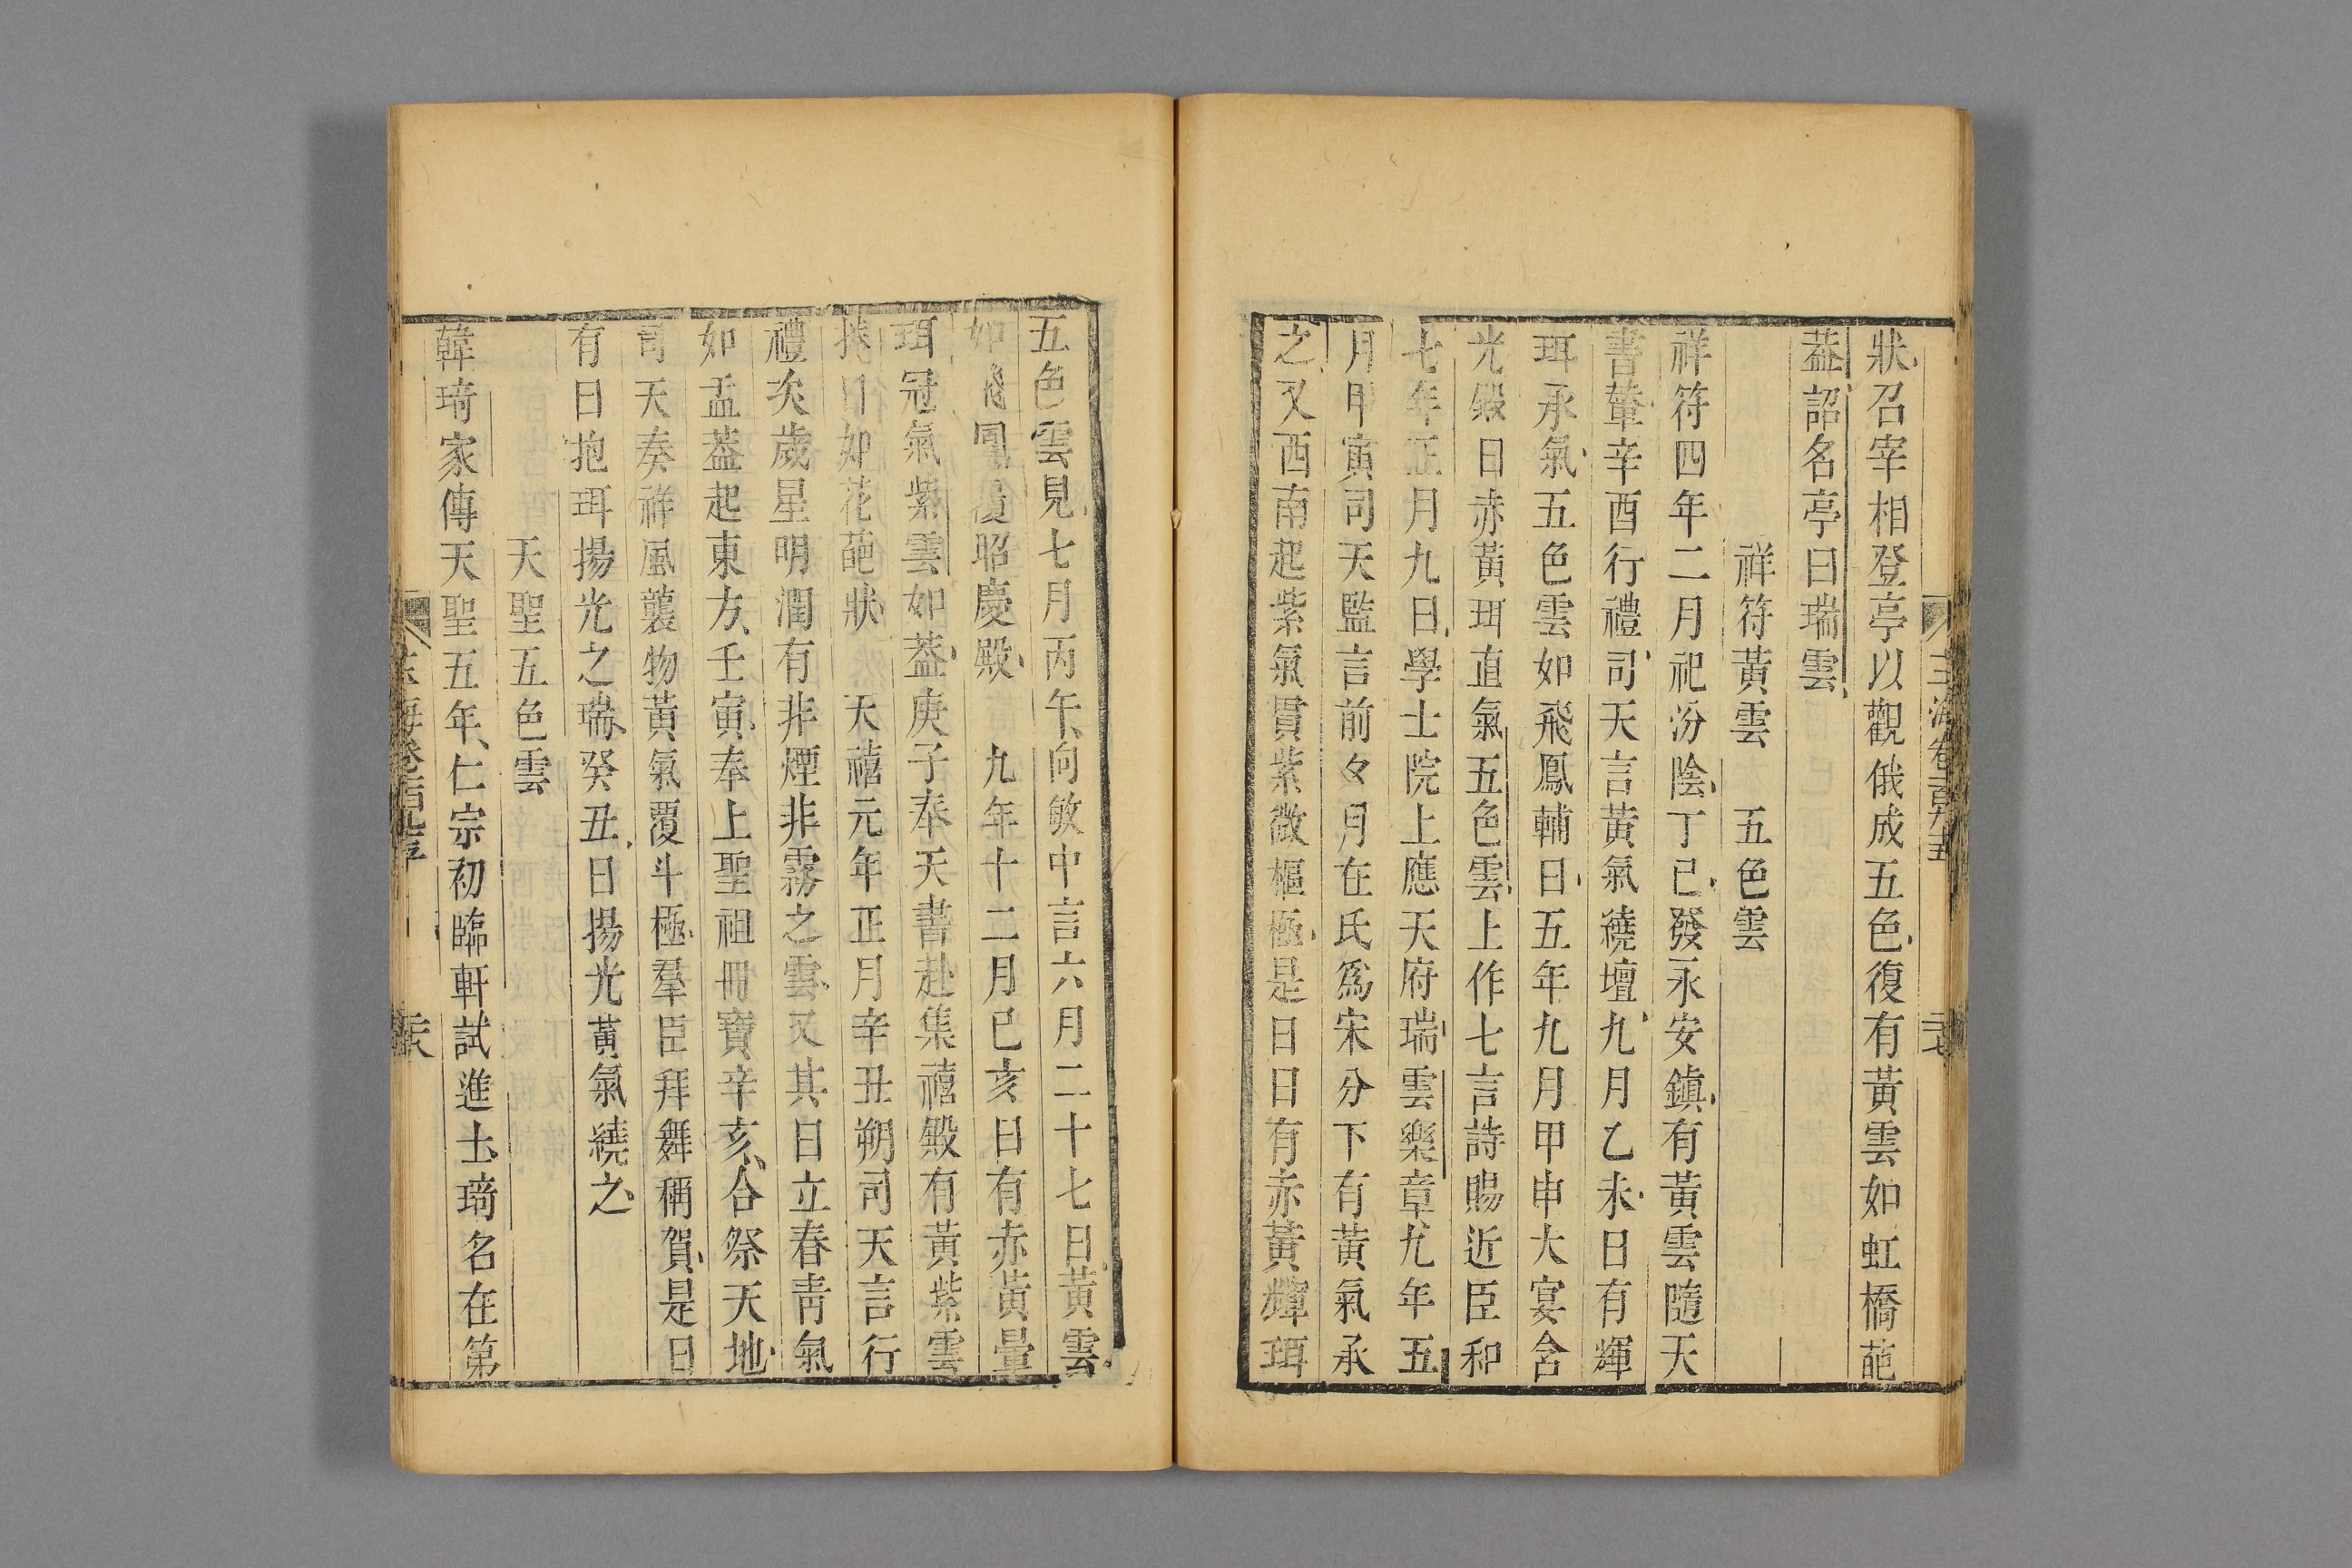 狀召宰相登亭以觀俄成五色復有黃雲如虹橋葩
蓋詔名亭曰瑞雲
祥符黃雲　五色雲
祥符四年二月祀汾陰丁已發永安鎮有黃雲隨天
書輦辛酉行禮司天言黃氣繞壇九月乙未日有輝
珥承氣五色雲如飛鳳輔日五年九月甲申大宴含
光殿日赤黃珥直氣五色雲上作七言詩賜近臣和
七年正月九日學士院上應天府瑞雲樂章九年五
月甲寅司天監言前夕月在氐爲宋分下有黃氣承
之又西南起紫氣貫紫微樞極是日日有赤黃輝珥
五色雲見七月丙午向敏中言六月二十七日黃雲
如飛鳳覆昭慶殿　九年十二月已亥日有赤黃暈
珥冠氣紫雲如蓋庚子奉天書赴集禧殿有黃紫雲
捧日如花葩狀　天禧元年正月辛丑朔司天言行
禮次歲星明潤有非煙非霧之雲又其日立春靑氣
如盂蓋起東方壬寅奉上聖祖冊寶辛亥合祭天地
司天奏祥風襲物黃氣覆斗極羣臣拜舞稱賀是日
有日抱珥揚光之瑞癸丑日揚光黃氣繞之
天聖五色雲
韓琦家傳天聖五年仁宗初臨軒試進士琦名在第